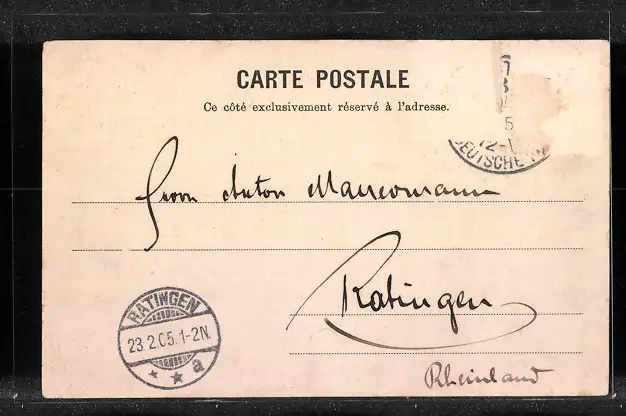 CARTE POSTALE
Ce côté exclusivement réservé à l'adresse.
5
12-
DEUTSCHE P
Herrn Anton
Ratingen
RATINGEN
23.2.05.1-2N.
* * a
Rheinland